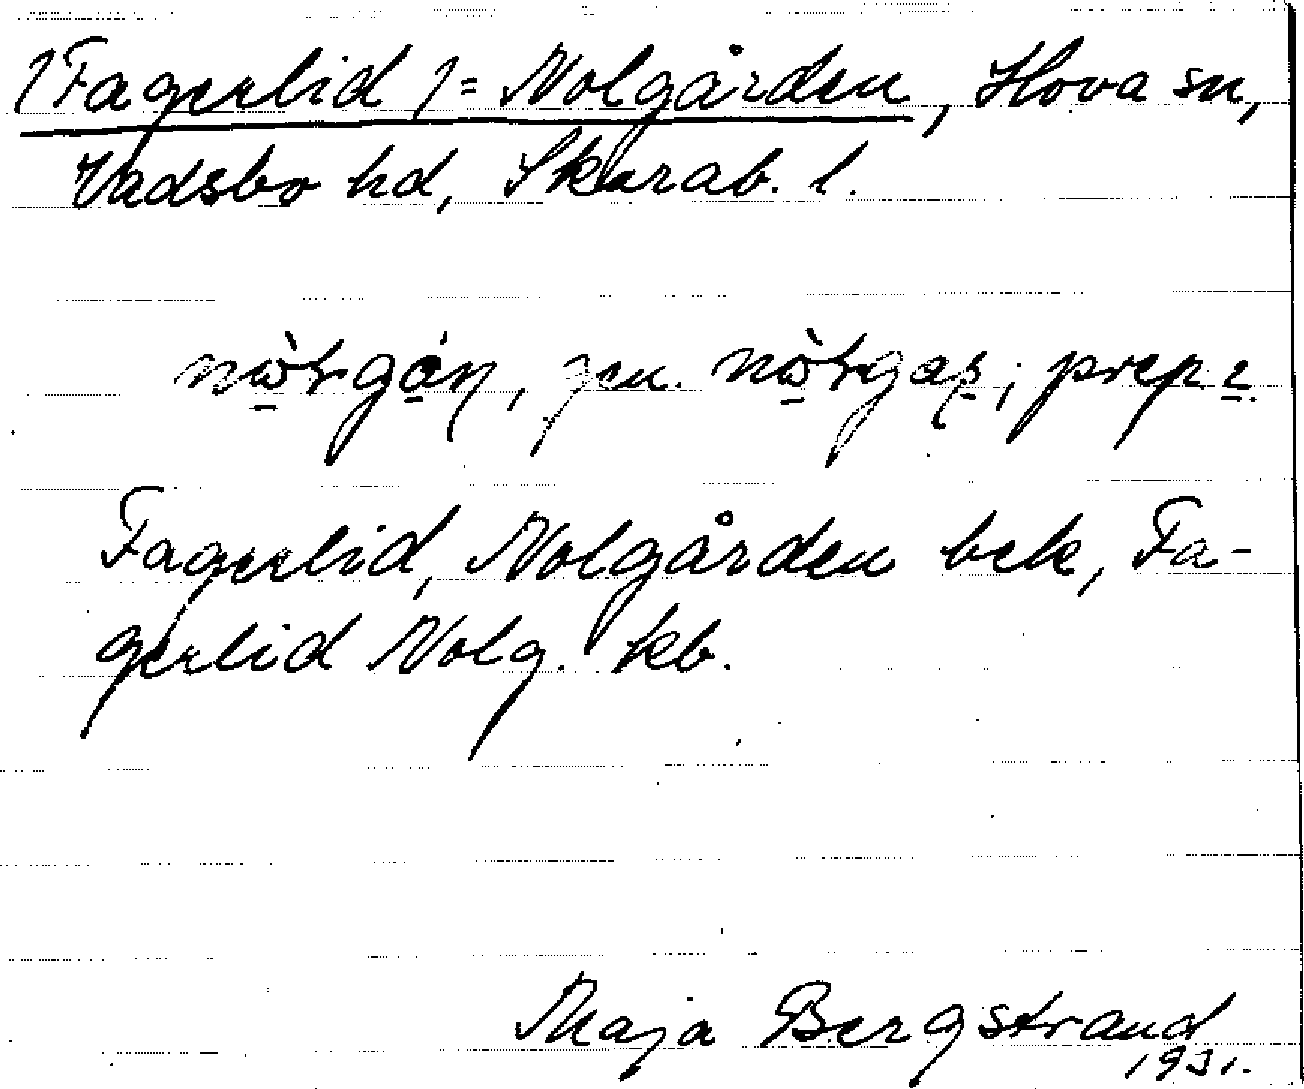 (Fagerlid)= Nolgården, Hova sn,
Vadsbo hd, Skarab. l.
gen. prep
Fagerlid, Nolgården bek, Fa-
gerlid Nolg. kb.
Maja Bergstrand
1931.